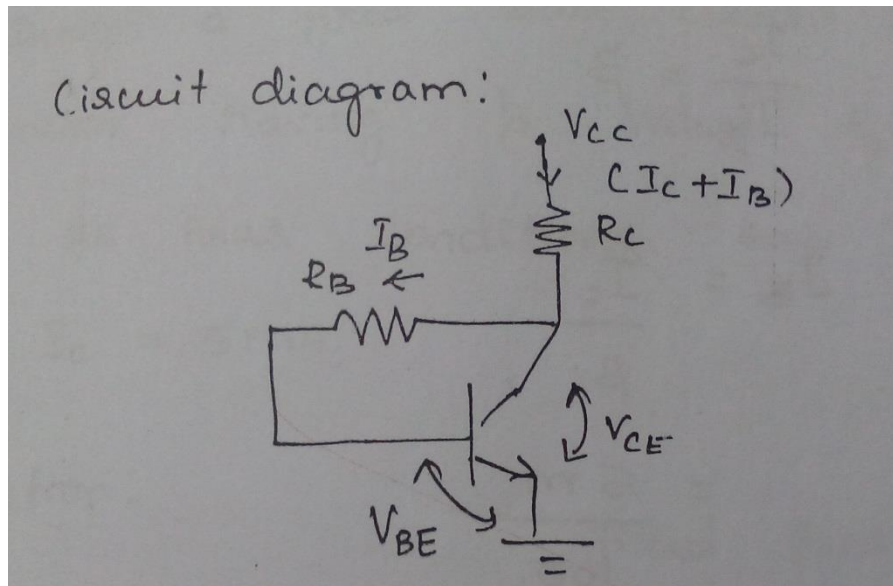 Circuit diagram:
VCC
(IC+IB)
RC
IB
RB
VCE
VBE